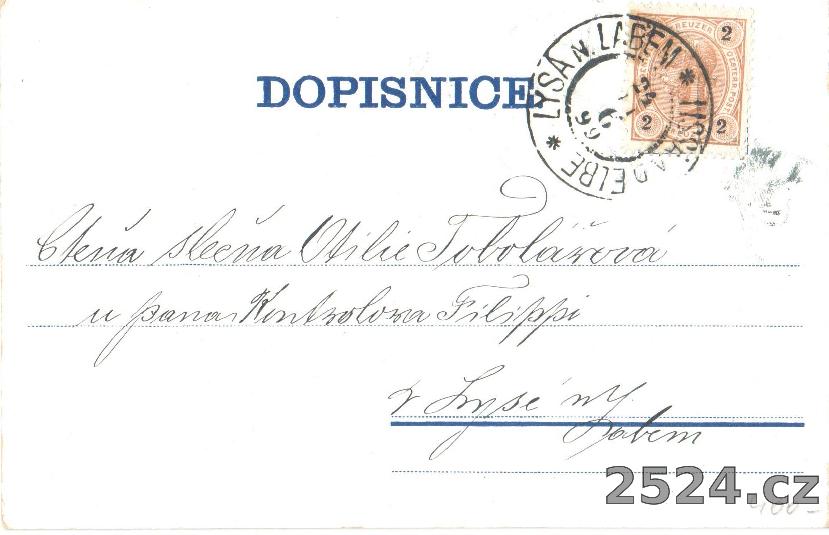 DOPISNICE
LYSÁ N. LABEM * LISSA A. D. ELBE *
24
6
99
KREUZER
2
2 2
Ctěná slečna Otilie Tobolářová
u pana Kontrolora Filippi
v Lysé n/
Labem
2524.cz
400-